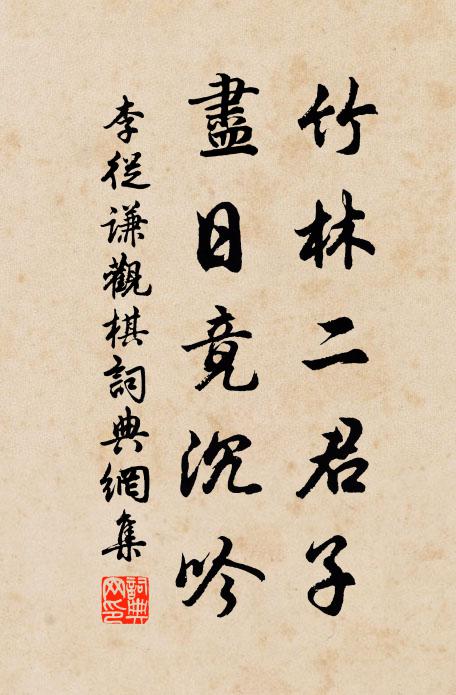 竹林二君子
盡日竟沉吟
李從謙觀棋詞典網集
詞典網印